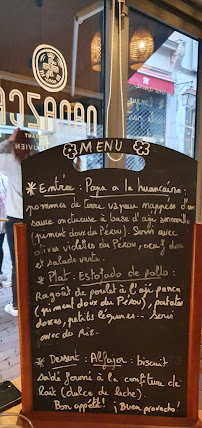 MENU
* Entrée : Papa a la huancaina :
pommes de terre vapeur nappées d'une
sauce onctueuse à base d'aji amarillo
(piment doux du Pérou). Servi avec
olives violettes du Pérou, oeuf dur
et salade verte.
* Plat : Estofado de pollo :
Ragoût de poulet à l'aji panca
(piment doux du Pérou), patates
douces, petits légumes - servi
avec du Riz.
* Dessert : Alfajor : biscuit
sablé fourré à la confiture de
lait (dulce de leche).
Bon appétit! ¡Buen provecho!